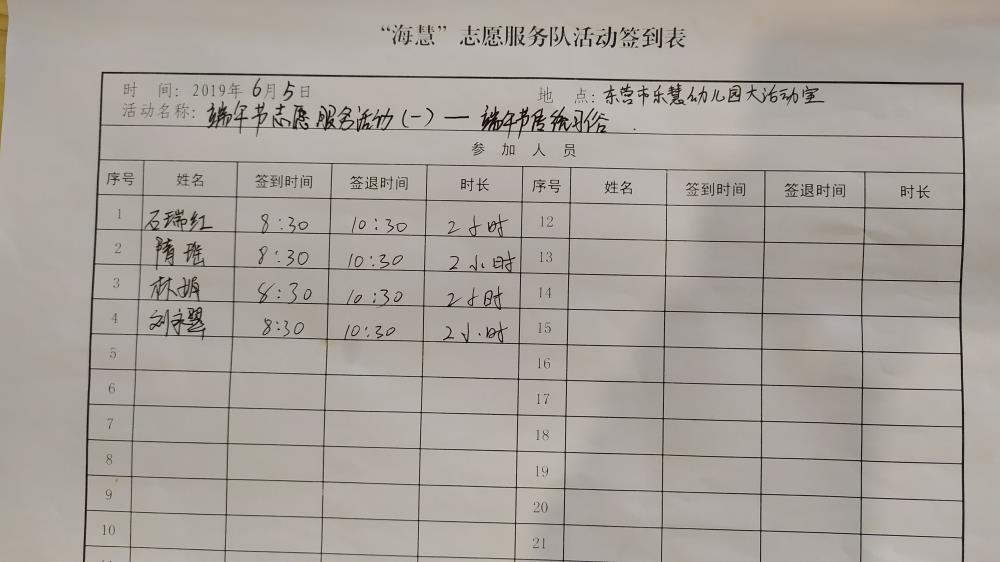 “海慧”志愿服务队活动签到表
时 间：2019年6月5日 地 点：东营市乐慧幼儿园大活动室
活动名称：端午节志愿服务活动(一)—端午节传统习俗
参 加 人 员
序号 姓名 签到时间 签退时间 时长 序号 姓名 签到时间 签退时间 时长
1 石瑞红 8:30 10:30 2小时 12
2 隋瑶 8:30 10:30 2小时 13
3 林娟 8:30 10:30 2小时 14
4 刘 8:30 10:30 2小时 15
5 16
6 17
7 18
8 19
9 20
10 21